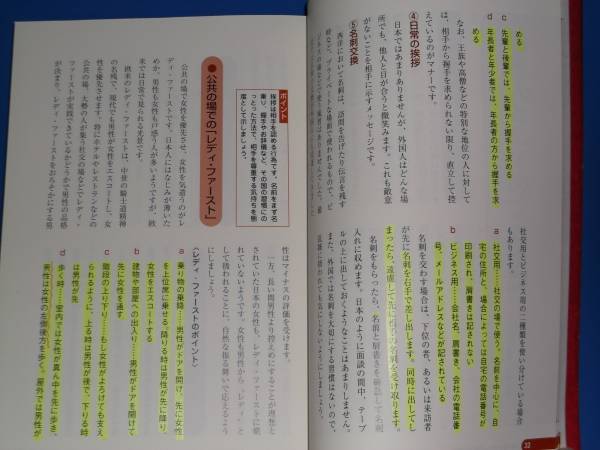 める
c 先輩と後輩では、先輩から握手を求める
d 年長者と年少者では、年長者の方から握手を求
める
なお、王族や高僧などの特別な地位の人に対して
は、相手から握手を求められない限り、直立して控
えているのがマナーです。
④日常の挨拶
日本ではあまりありませんが、外国人はどんな場
所でも、他人と目が合うと微笑みます。これも敵意
がないことを相手に示すメッセージです。
⑤名刺交換
西洋において名刺は、訪問を告げたり伝言を残す
時など、プライベートな場面で使われるもので、ビ
社交用とビジネス用の二種類を使い分けている場合
もあります。
a 社交用……社交の場で使う。名前を中心に、自
宅の住所と、場合によっては自宅の電話番号が
印刷され、肩書きは記されない
b ビジネス用……会社名、肩書き、会社の電話番
号、メールアドレスなどが記されている
名刺を交わす場合は、下位の者、あるいは来訪者
が先に名刺を右手で差し出します。同時に出してし
まったら、遠慮して先に相手の名刺を受け取ります。
名刺をもらったら、名前と肩書きを確認して名刺
入れに収めます。日本のように面談の間中、テーブ
ルの上に出しておくようなことはありません。
また、外国では名刺を大切にする習慣はないので、
22
ポイント
挨拶は相手を認める行為です。名前をまず名
乗り、握手やお辞儀など、その国の習慣にの
っとった方法で、相手を尊重する気持ちを態
度として示しましょう。
公共の場での「レディ・ファースト」
公共の場で女性を優先させ、女性を気遣うのがレ
ディ・ファーストです。日本人にはなじみが薄いた
めか、男性も女性も戸惑う人が多いようですが、欧
米では日常で見られる光景です。
欧米のレディ・ファーストは、中世の騎士道精神
の名残で、現代でも男性が女性をエスコートし、女
性を優先させます。特にホテルやレストランなどの
公共の場、大勢の人が集う社交の場などでレディ・
ファーストが実践できているかどうかで男性の品格
が決まり、レディ・ファーストをおろそかにする男
性はマイナスの評価を受けます。
一方、長い間男性より控えめにすることが理想と
されていた日本の女性も、レディ・ファーストに慣
れていないようです。女性も男性から、レディーと
して扱われることに、自然な振る舞いで応えるよう
にしましょう。
〈レディ・ファーストのポイント〉
a 乗り物の乗降……男性がドアを開け、先に女性
を上位席に乗せる。降りる時は男性が先に降り、
女性をエスコートする
b 建物や部屋への出入り……男性がドアを開けて
先に女性を通す
c 階段の上り下り……もし女性がよろけても支え
られるように、上る時は男性が後で、下りる時
は男性が先
d 歩く時……室内では女性が真ん中を先に歩き、
男性は女性の左側後方を歩く。屋外では男性が